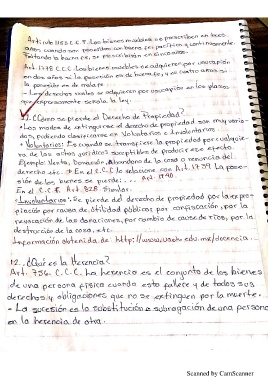 Artículo 1153 C.C.F. Los bienes muebles se prescriben en tres
años cuando son poseídos con buena fe, pacífica y continuamente.
Faltando la buena fe, se prescribirán en cinco años.
Art. C.C.C. Los bienes muebles se adquieren por usucapión
en dos años si la posesión es de buena fe, y en cuatro años si
la posesión es de mala fe.
- Los derechos reales se adquieren por usucapión en los plazos
que expresamente señala la ley.
¿Cómo se pierde el Derecho de Propiedad?
• Los modos de extinguirse el derecho de propiedad son muy varia-
dos, pudiendo clasificarse en Voluntarios e Involuntarios
• Voluntarios: Es cuando se transmiten la propiedad por cualquie-
ra de los actos jurídicos susceptibles de producir ese efecto.
Ejemplo: Venta, Donación, Abandono de la cosa o renuncia del
derecho etc. * En el C.C.F lo relaciona con Art. La pose-
sión de los bienes se pierde:... Art
En el C.C.F. Art. 828 Similar.
• Involuntarios: Se pierde del derecho de propiedad por la expro-
piación por causa de utilidad públicas por confiscación, por la
revocación de las donaciones, por cambio de cause de ríos, por la
destrucción de la cosa, etc.
Información obtenida de http://www.uach.edu.mx/docencia...
12. ¿Qué es la Herencia?
Art. 756. C.C.C. La herencia es el conjunto de los bienes
de una persona física cuando esta fallece y de todos sus
derechos y obligaciones que no se extinguen por la muerte.
- La sucesión es la sustitución o subrogación de una persona
en la herencia de otra.
Scanned by CamScanner